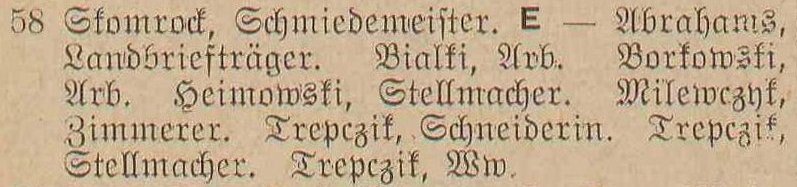 58 Skomrock, Schmiedemeister. E — Abrahams,
Landbriefträger. Bialki, Arb. Borkowski,
Arb. Heimowski, Stellmacher. Milewczyk,
Zimmerer. Trepczik, Schneiderin. Trepczik,
Stellmacher. Trepczik, Ww.